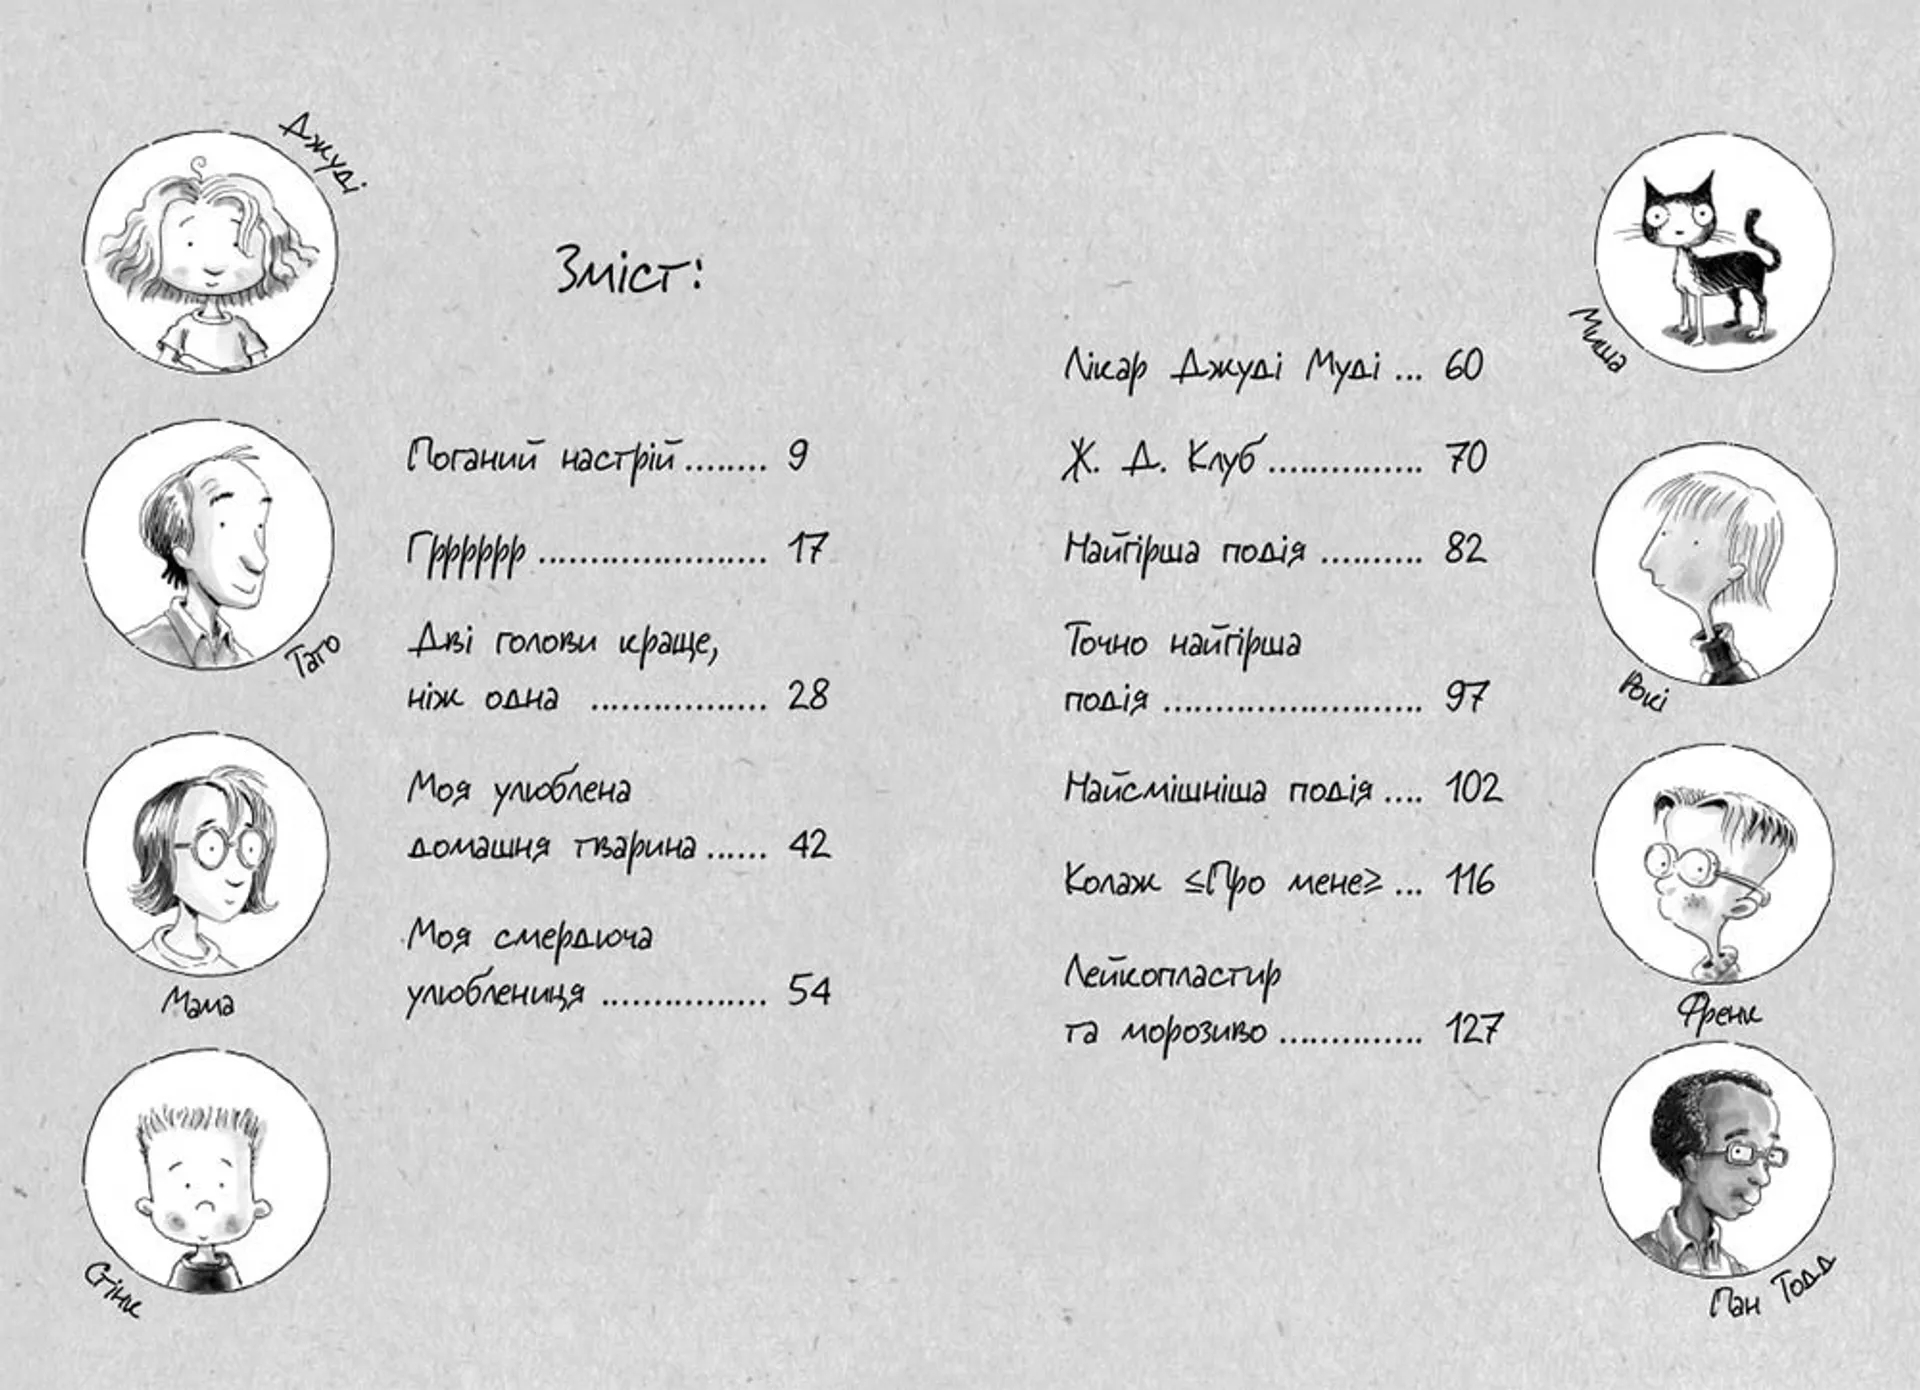 Джуді
Тато
Мама
Стінк
Зміст:
Поганий настрій........ 9
Грррррр ...................... 17
Дві голови краще,
ніж одна ................. 28
Моя улюблена
домашня тварина ...... 42
Моя смердюча
улюблениця ................ 54
Лікар Джуді Муді ... 60
Ж. Д. Клуб ............... 70
Найгірша подія .......... 82
Точно найгірша
подія ......................... 97
Найсмішніша подія .... 102
Колаж «Про мене» ... 116
Лейкопластир
та морозиво .............. 127
Миша
Рокі
Френк
Пан Тодд